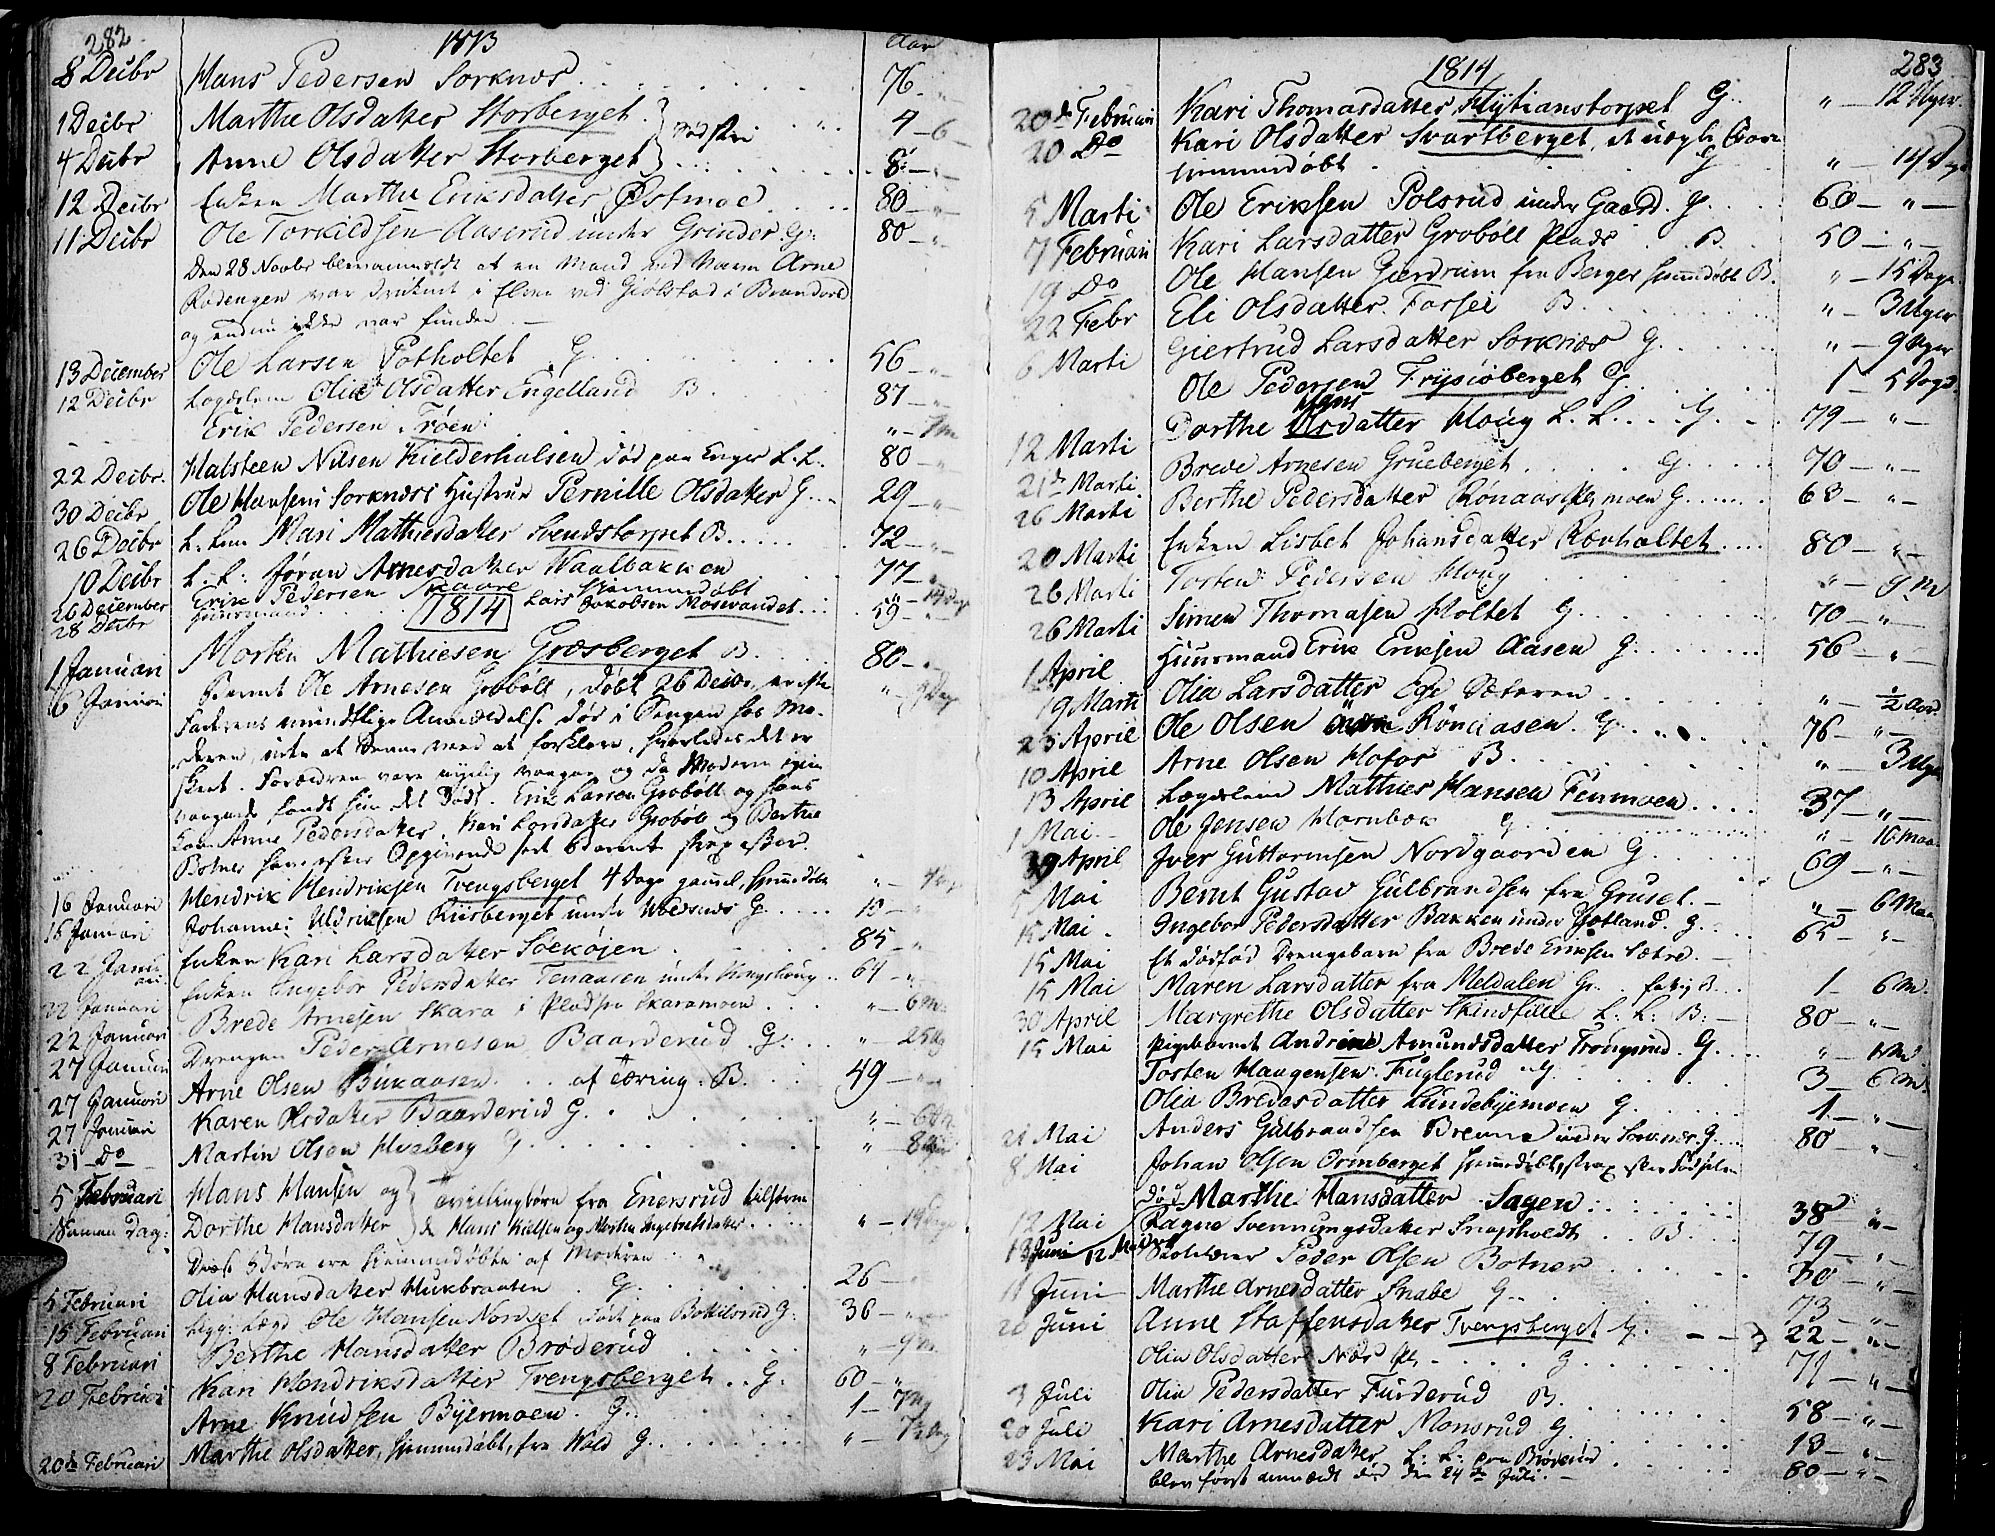 282 1813 Aar
8 Decbr Hans Pedersen Sorknæs 76 - " -
1 Decbr Marthe Olsdatter Storberget 4 - 6 -
4 Decbr Anne Olsdatter Storberget } Søstre 8 - " -
12 Decbr Enken Marthe Eriksdatter Østmoe 80 - " -
11 Decbr Ole Torkildsen Aaserud under Grinder G: 80 - " -
Den 28 Novbr blev anmeldt at en Mand ved Navn Arne
Rodengen var druknet i Elven ved Gjølstad i Brandvold
og endnu ikke var funden. -
13 December Ole Larsen Potholtet G 56 - " -
12 Decbr Lægdslem Olia Olsdatter Engelland B 87 - " -
Erik Pedersen Trøen " - 7 m
22 Decbr. Halsteen Nilsen Kielderhalsen død paa Enger L. L. 80 - "
30 Decbr Ole Hansens Sorknæs Hustrue Pernille Olsdatter G 29 - " -
26 Decbr L. Lem Mari Mathiesdatter Svendstorpet B 72 - " -
10 Decbr L. L: Jøran Arnesdatter Waalbakken 77 - " -
26 December Erik Pedersen Skaare hiemmedøbt " - 14 Dage
28 Decbr Huusmand Lars Jakobsen Mosevandet 59 - " -
1814
1 Januari Morten Mathiesen Græsberget B 80 - " -
6 Januari Barnet Ole Arnesen Grobøll, døbt 26 Decbr, er efter
Faderens mundtlige Anmeldelse død i Sengen hos Mo-
deren, uden at denne veed at forklare, hvorledes det er
skeet. Forældrene vare nylig vaagne og da Moderen igien
vaagnede fandt hun det dødt. Erik Larsen Grobøll og hans
Kone Anne Pedersdatter, Kari Larsdatter Grobøll og Berthe
Botner have efter Opgivende seet Barnet strax efter.
16 Januari Hendrik Hendriksen Tvengsberget 4 Dage gammel, hjemmedøbt " - 4 Dage
16 Januari Johannes Uldriksen Riisberget under G 10 - "
22 Januari Enken Kari Larsdatter Soekojen 85 - "
22 Januari Enken Ingebor Pedersdatter Tenaasen under Kongshoug 64 - "
22 Januari Brede Arnesen Skara i Pladsen Skaramoen " - 6 m.
27 Januari Drengen Peder Arnesen Baarderud G: " - 25 Ug
27 Januari Arne Olsen Bukaasen af Tæring. B. 49 - " -
27 Januari Karen Olsdatter Baarderud G. " - 6
31 - Do Martin Olsen Hveberg G " - 8
5 Februari Hans Hansen og } Tvillingbørn fra Enersrud tilhørende
Samme Dag: Dorthe Hansdatter } de Hans Kielsen og Marthe Ingebretsdatter " - 14 Dage
Disse Børn ere hiemmedøbte af Moderen
5 Februari Olia Hansdatter Hukbraaten G. 26 - "
15 Februari Ligg: Lægd Ole Hansen Nordset død paa Bokilsrud G: 36 - " -
8 Februari Berthe Hansdatter Brøderud " - 9 m
20 Februari Kari Hendriksdatter Tvengsberget G: 60 - " -
Arne Knudsen Byermoen. G. 1 - 7 m
20de Februari Marthe Olsdatter, hjemmedøbt, fra Wold G. " -
1814 283
20de Februari Kari Thomasdatter Flytianstorpet G " - 12 Uger
20 Do Kari Olsdatter Svartberget, et uægte Barn
hiemmedøbt G " - 14 Dage
5 Marti Ole Eriksen Polsrud under Gaard. G 60 - " -
7 Februari Kari Larsdatter Grobøll Plads B. 50 - " -
19 Do Ole Hansen Gierdrum fra Berger hiemmedøbt B. " - 15 Dage
22 Febr Eli Olsdatter. Forsei B " - 3 Uger
6 Marti Giertrud Larsdatter Sorknæs G " - 9 Uger
Ole Pedersen Frysiøberget G 1 - 5 Dage
12 Marti Dorthe Hansdatter Houg L. L. G. 79 - " -
21de Marti Brede Arnesen Grueberget G 70 - " -
26 Marti Berthe Pedersdatter Rønaas G 63 - " -
20 Marti Enken Lisbet Johansdatter Rævholtet 80 - " -
26 Marti Tosten Pedersen Houg " - 9 M
26 Marti Simen Thomasen Holtet G 70 - " -
1 April Huusmand Erik Eriksen Aasen G 56 - " -
19 Marti Olia Larsdatter Ege Sæteren " - ½ Aar
25 April Ole Olsen Rønaasen. G. 76 - " -
10 April Arne Olsen Hofos B " - 3 Uger
13 April Lægdslem Mathies Hansen Finmoen 37 - " -
1 Mai Ole Jensen Hornbæk G " - 10 Maa
29 April Iver Guttormsen Nordgaarden G 69 - " -
5 Mai Bernt Gustav Gulbrandsen fra Gruset. " - 6 Maa
15 Mai Ingebor Pedersdatter Bakken under Gotland. G 65 - " -
15 Mai Et dødfød Drengebarn fra Brede Eriksen Sætre. -
15 Mai Maren Larsdatter fra Meldalen G. 1 - 6 m.
30 April Margrethe Olsdatter Skindfille L. L: B: 80 - " -
15 Mai Pigebarnet Andrine Amundsdatter Trongsrud. G " -
Tosten Haagensen Fuglerud G 3 - 6 m.
Olia Bredesdatter Lundebyemoen G 1 - " -
21 Mai Anders Gulbrandsen Brenna under Sorknæs. G 80 - "
8 Mai Johan Olsen Ormberget hjemmedøbt, strax efter Fødselen
død
12 Mai Marthe Hansdatter Sagen 38 - " -
13 Juni Ragne Svenningsdatter Snapholdt B. 79 - " -
12 Skolelærer Peder Olsen Botner 70 - " -
11 Juni Marthe Arnesdatter Snabe G 73 - " -
20 Juni Anne Staffensdatter Tvengsberget G. 22 - " -
Olia Olsdatter Næs G 71 - " -
3 Juli Olia Pedersdatter Furderud B
20 Juli Kari Arnesdatter Monsrud G. 58 - " -
23 Mai Marthe Arnesdatter L: L: paa Brøderud 80 - " -
blev først anmeldt død den 24de Juli. -